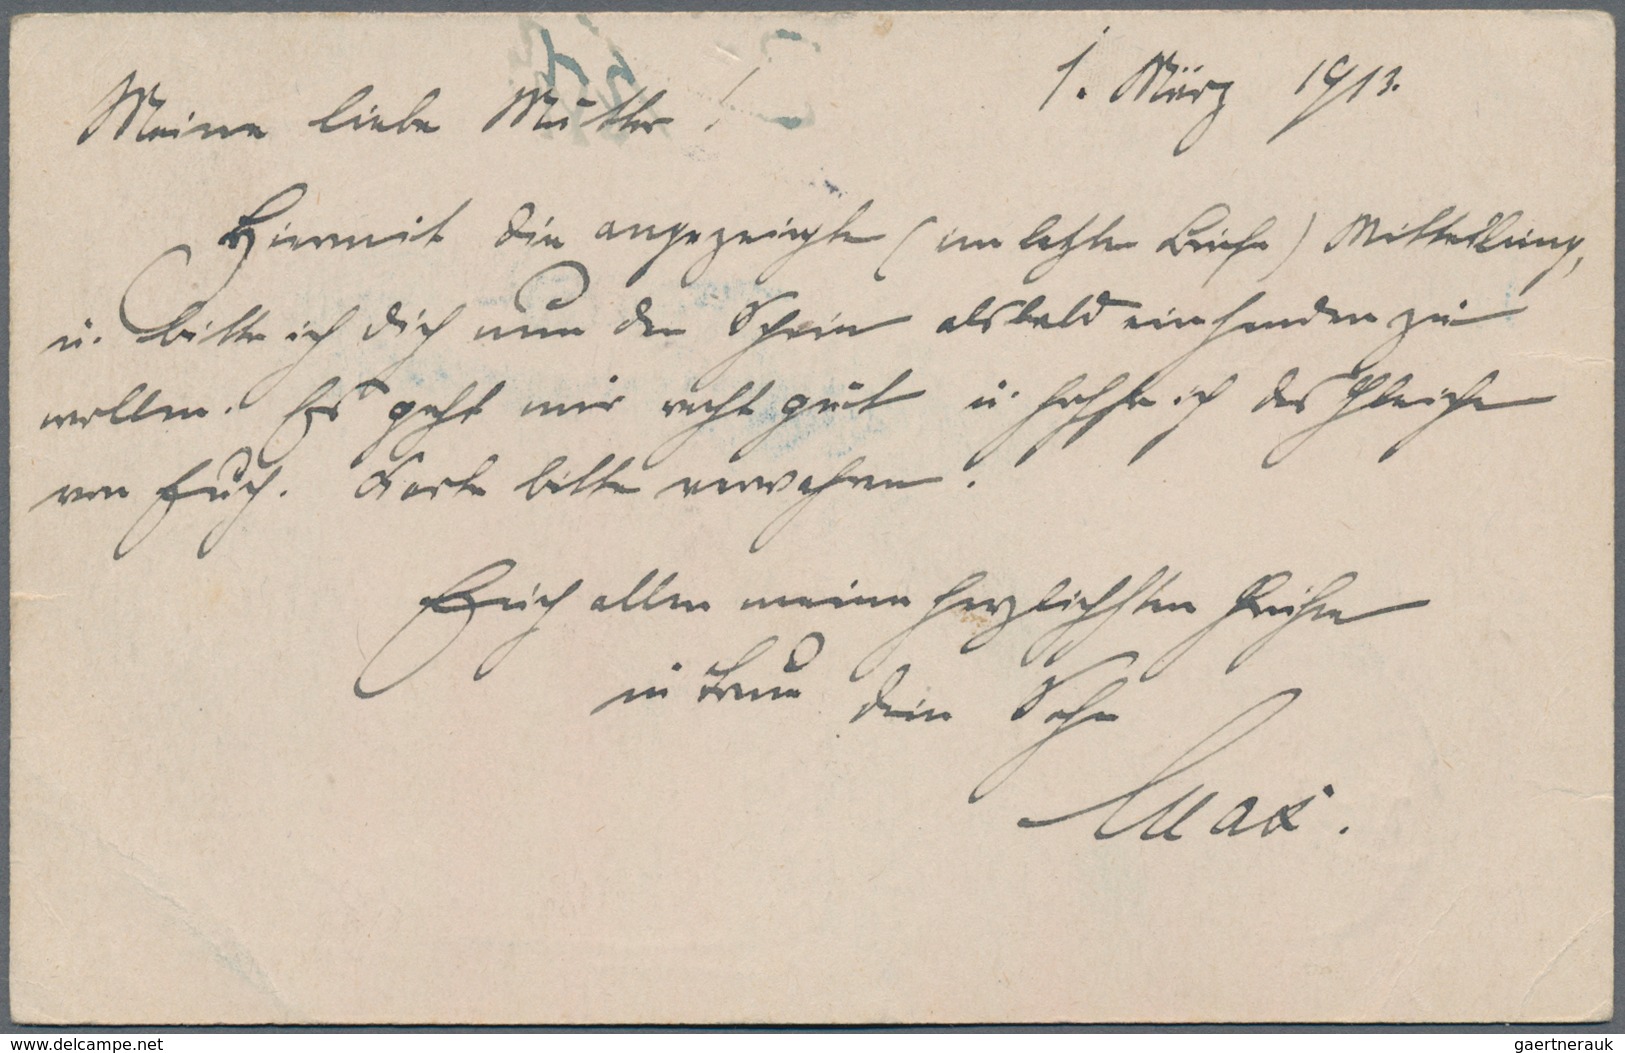 1. März 1913.
Meine liebe Mutter!
Hiermit die angezeigte (im letzten Briefe) Mitteilung,
u. bitte ich Dich nun den Schein alsbald einsenden zu
wollen. Es geht mir recht gut u. hoffe ich das Gleiche
von Euch. Karte bitte verwahren.
Euch allen meine herzlichsten Grüße
in Treue Dein Sohn
Max.
www.delcampe.net
gaertnerauk